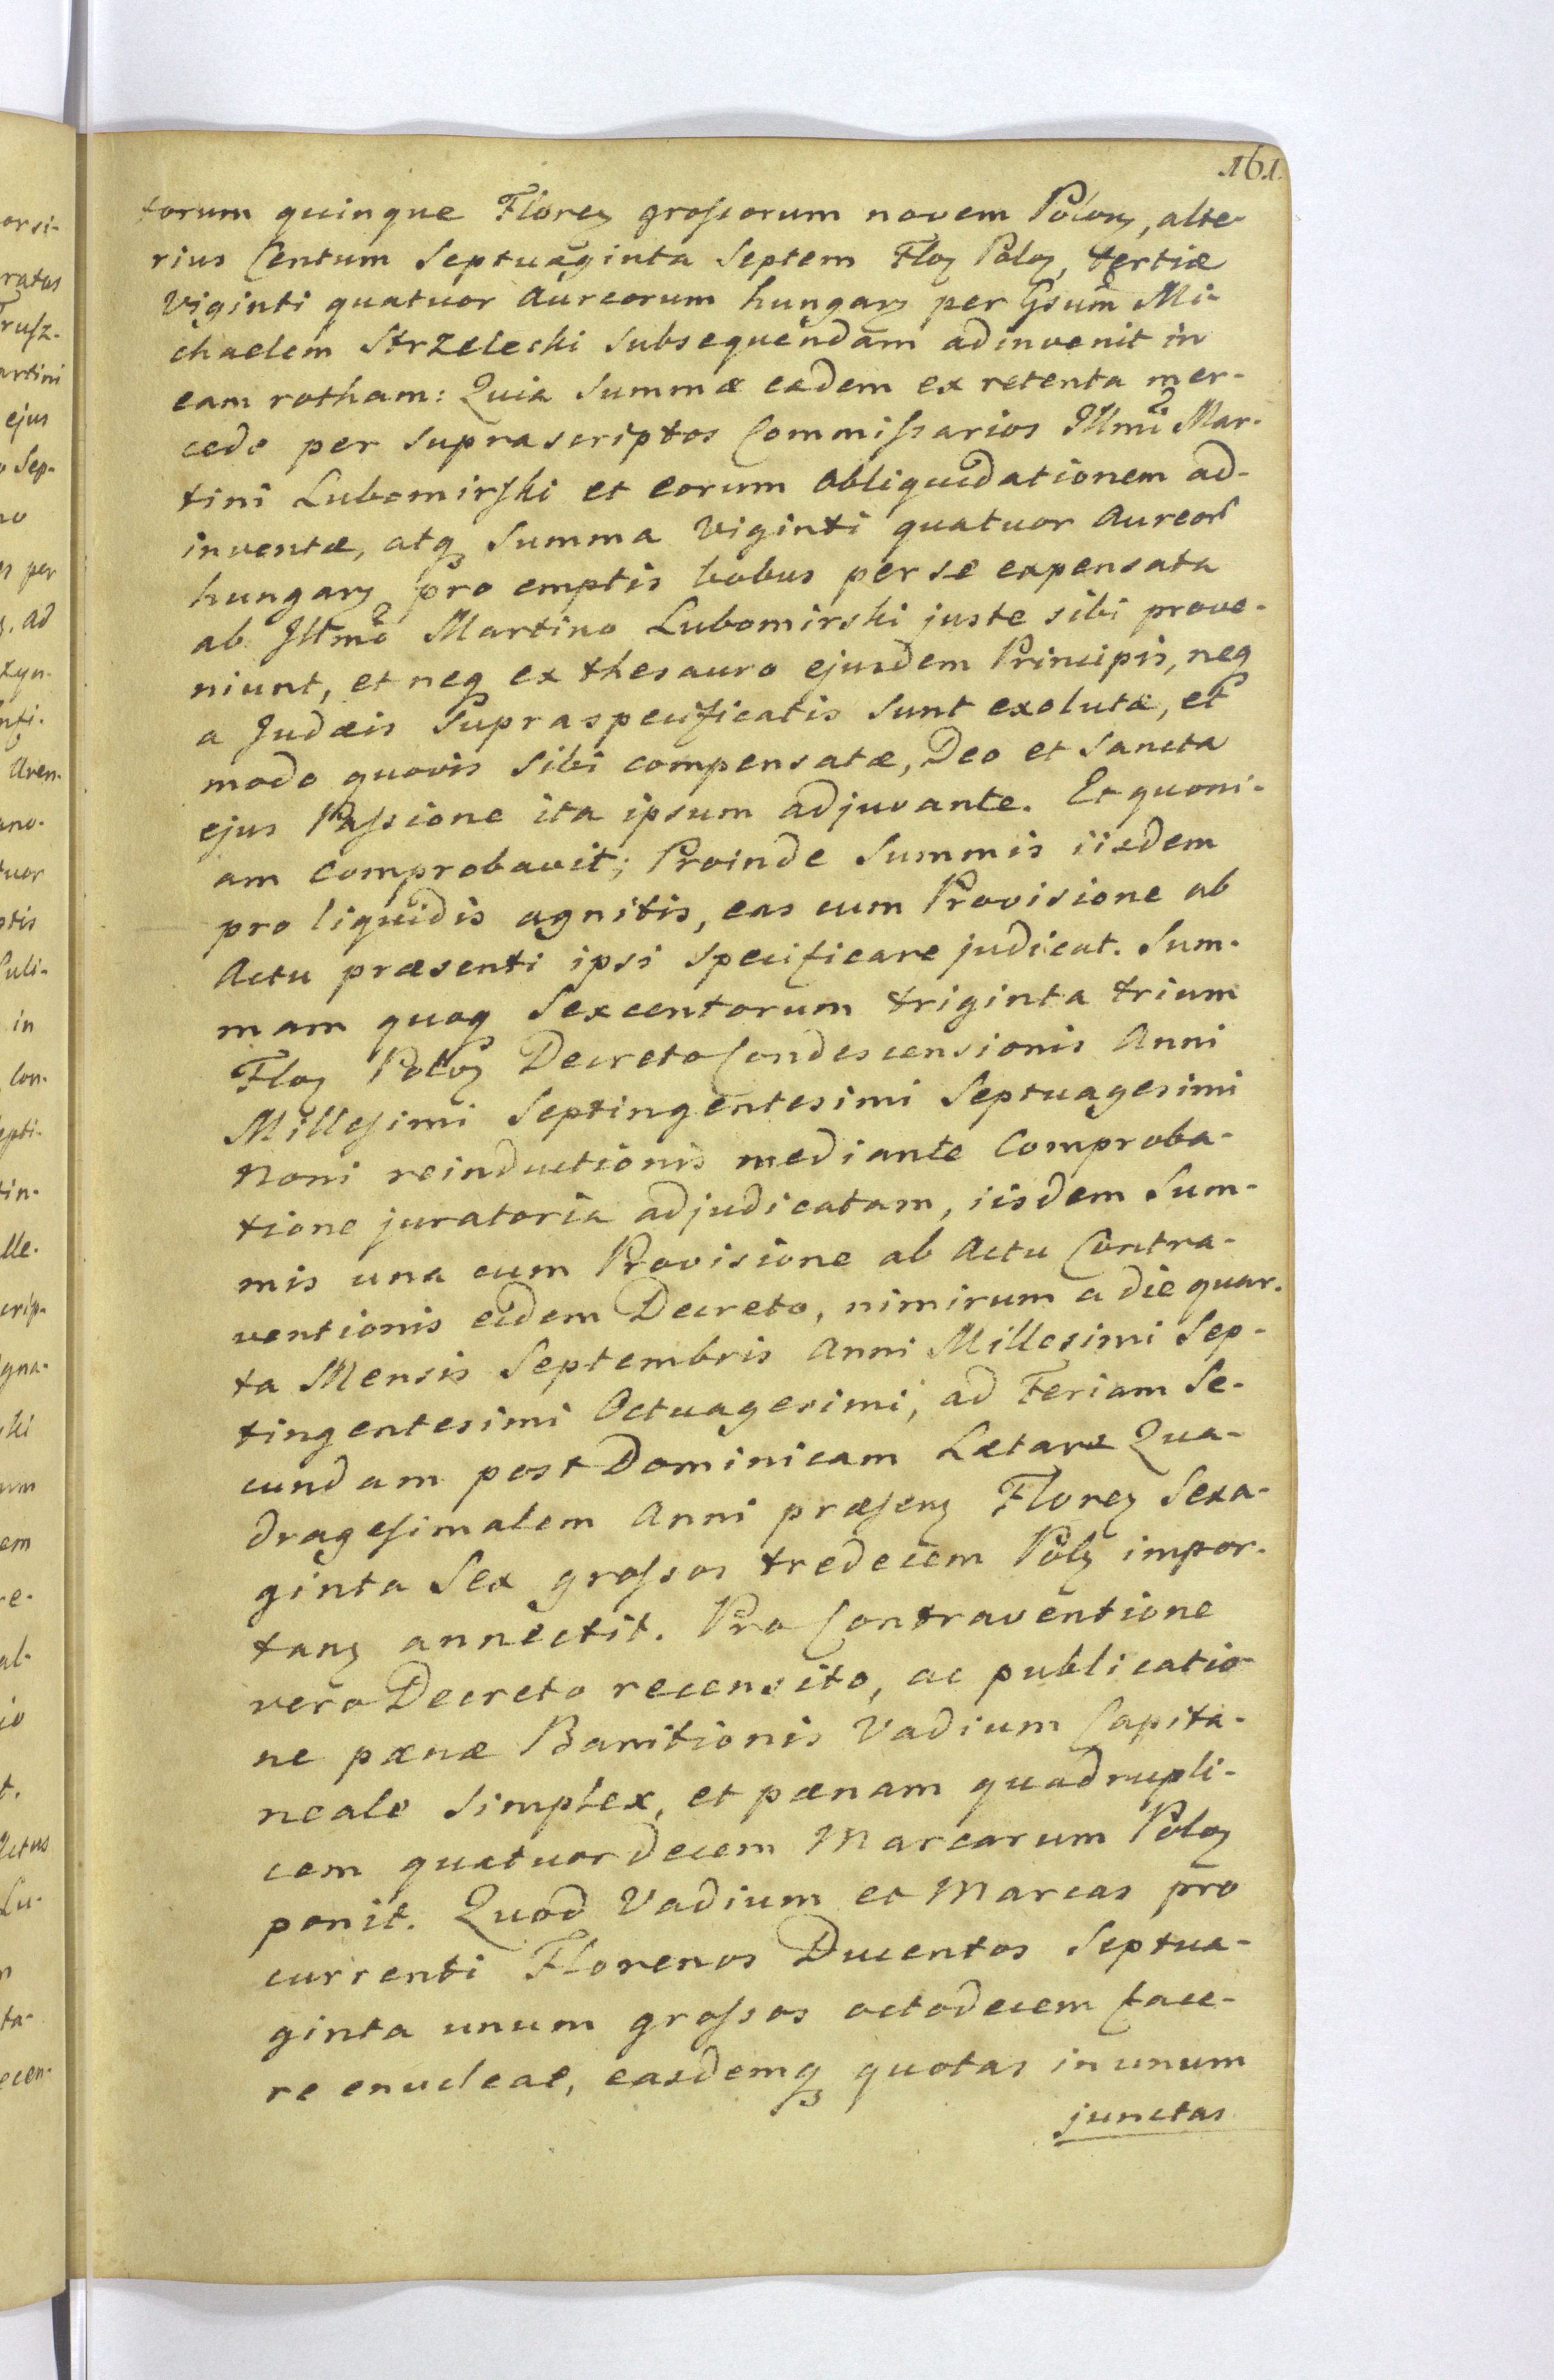 161.
torum quinque Floreꝫ grossorum novem Polonꝫ, alte-
rius Centum Septuaginta Septem Floꝫ Poloꝫ, tertiæ
Viginti quatuor Aureorum hungarꝫ per Gsum Mi-
chaelem Strzelecki subsequendam adinvenit in
eam rotham: Quia Summæ eædem ex retenta mer-
cede per suprascriptos Commissarios Illmi Mar-
tini Lubomirski et eorum obliquidationem ad-
inventæ, atqꝫ Summa Viginti quatuor Aureor
hungarꝫ pro emptis bobus per se expensata
ab Illmo Martino Lubomirski juste sibi prove-
niunt, et neqꝫ ex thesauro ejusdem Principis, neqꝫ
a Judæis Supraspecificatis sunt exolutæ, et
modo quovis sibi compensatæ, Deo et Sancta
ejus Passione ita ipsum adjuvante. Et quoni-
am comprobavit; Proinde Summis iisdem
pro liquidis agnitis, eas cum Provisione ab
Actu præsenti ipsi specificare judicat. Sum-
mam quoqꝫ Sexcentorum triginta trium
Floꝫ Poloꝫ Decreto Condescensionis Anni
Millesimi Septingentesimi Septuagesimi
Noni reinductionis mediante Comproba-
tione juratoria adjudicatam, iisdem Sum-
mis una cum Provisione ab Actu Contra-
ventionis eidem Decreto, nimirum a die quar-
ta Mensis Septembris Anni Millesimi Sep-
tingentesimi Octuagesimi, ad Feriam Se-
cundam post Dominicam Lætare Qua-
dragesimalem Anni præsenꝫ Floreꝫ Sexa-
ginta Sex grossos tredecem Polꝫ impor-
tanꝫ annectit. Pro Contraventione
vero Decreto recensito, ac publicatio-
ne pænæ Banitionis Vadium Capita-
neale simplex, et pænam quadrupli-
cem quatuordecem Marcarum Poloꝫ
ponit. Quod Vadium et Marcas pro
currenti Florenos Ducentos Septua-
ginta unum grossos octodecem face-
re enucleat, easdemqꝫ quotas in unum
junctas